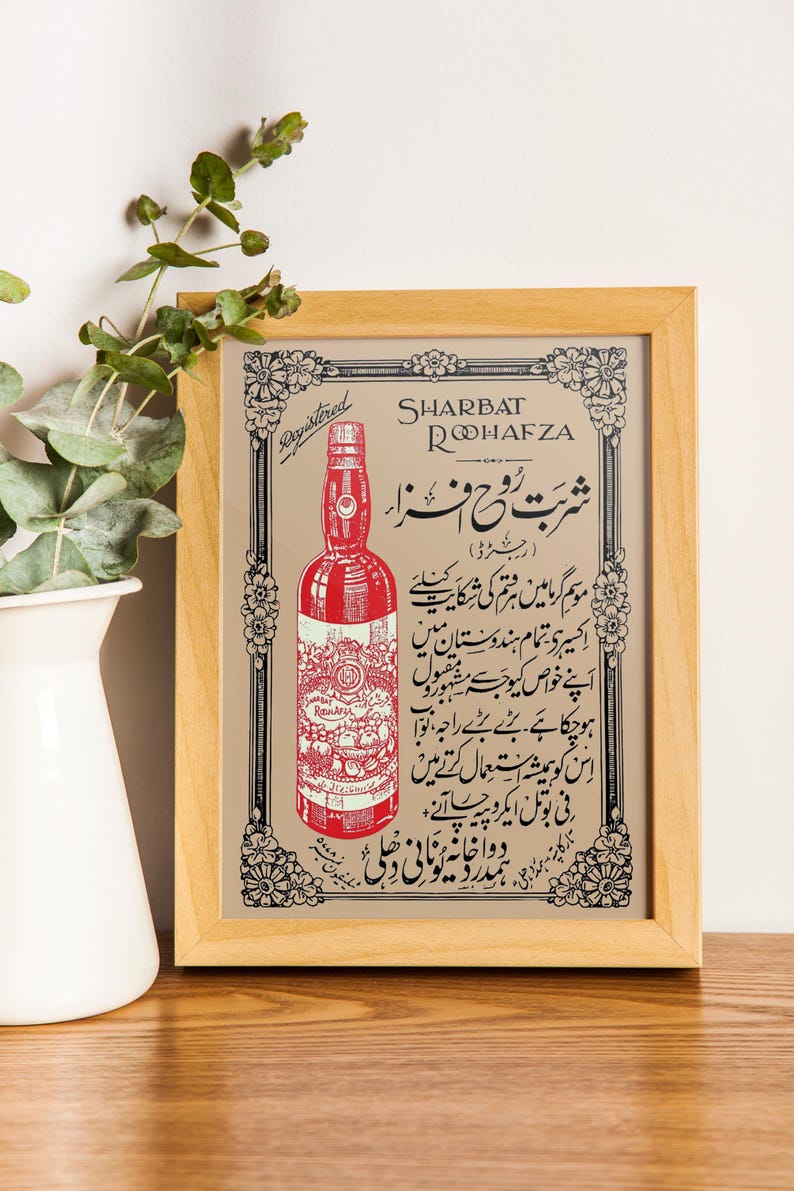 Registered
SHARBAT
ROOHAFZA
شربت روح افزا
(رجسٹرڈ)
موسم گرما میں ہر قسم کی شکایت کیلئے
اکسیر ہی تمام ہندوستان میں
اپنے خواص کیوجہ سے مشہور و مقبول
ہو چکا ہے۔ بڑے بڑے راجہ، نواب
اس کو ہمیشہ استعمال کرتے ہیں
فی بوتل ایکروپیہ چار آنے
ہمدرد دواخانہ یونانی دھلی
SHARBAT
ROOHAFZA